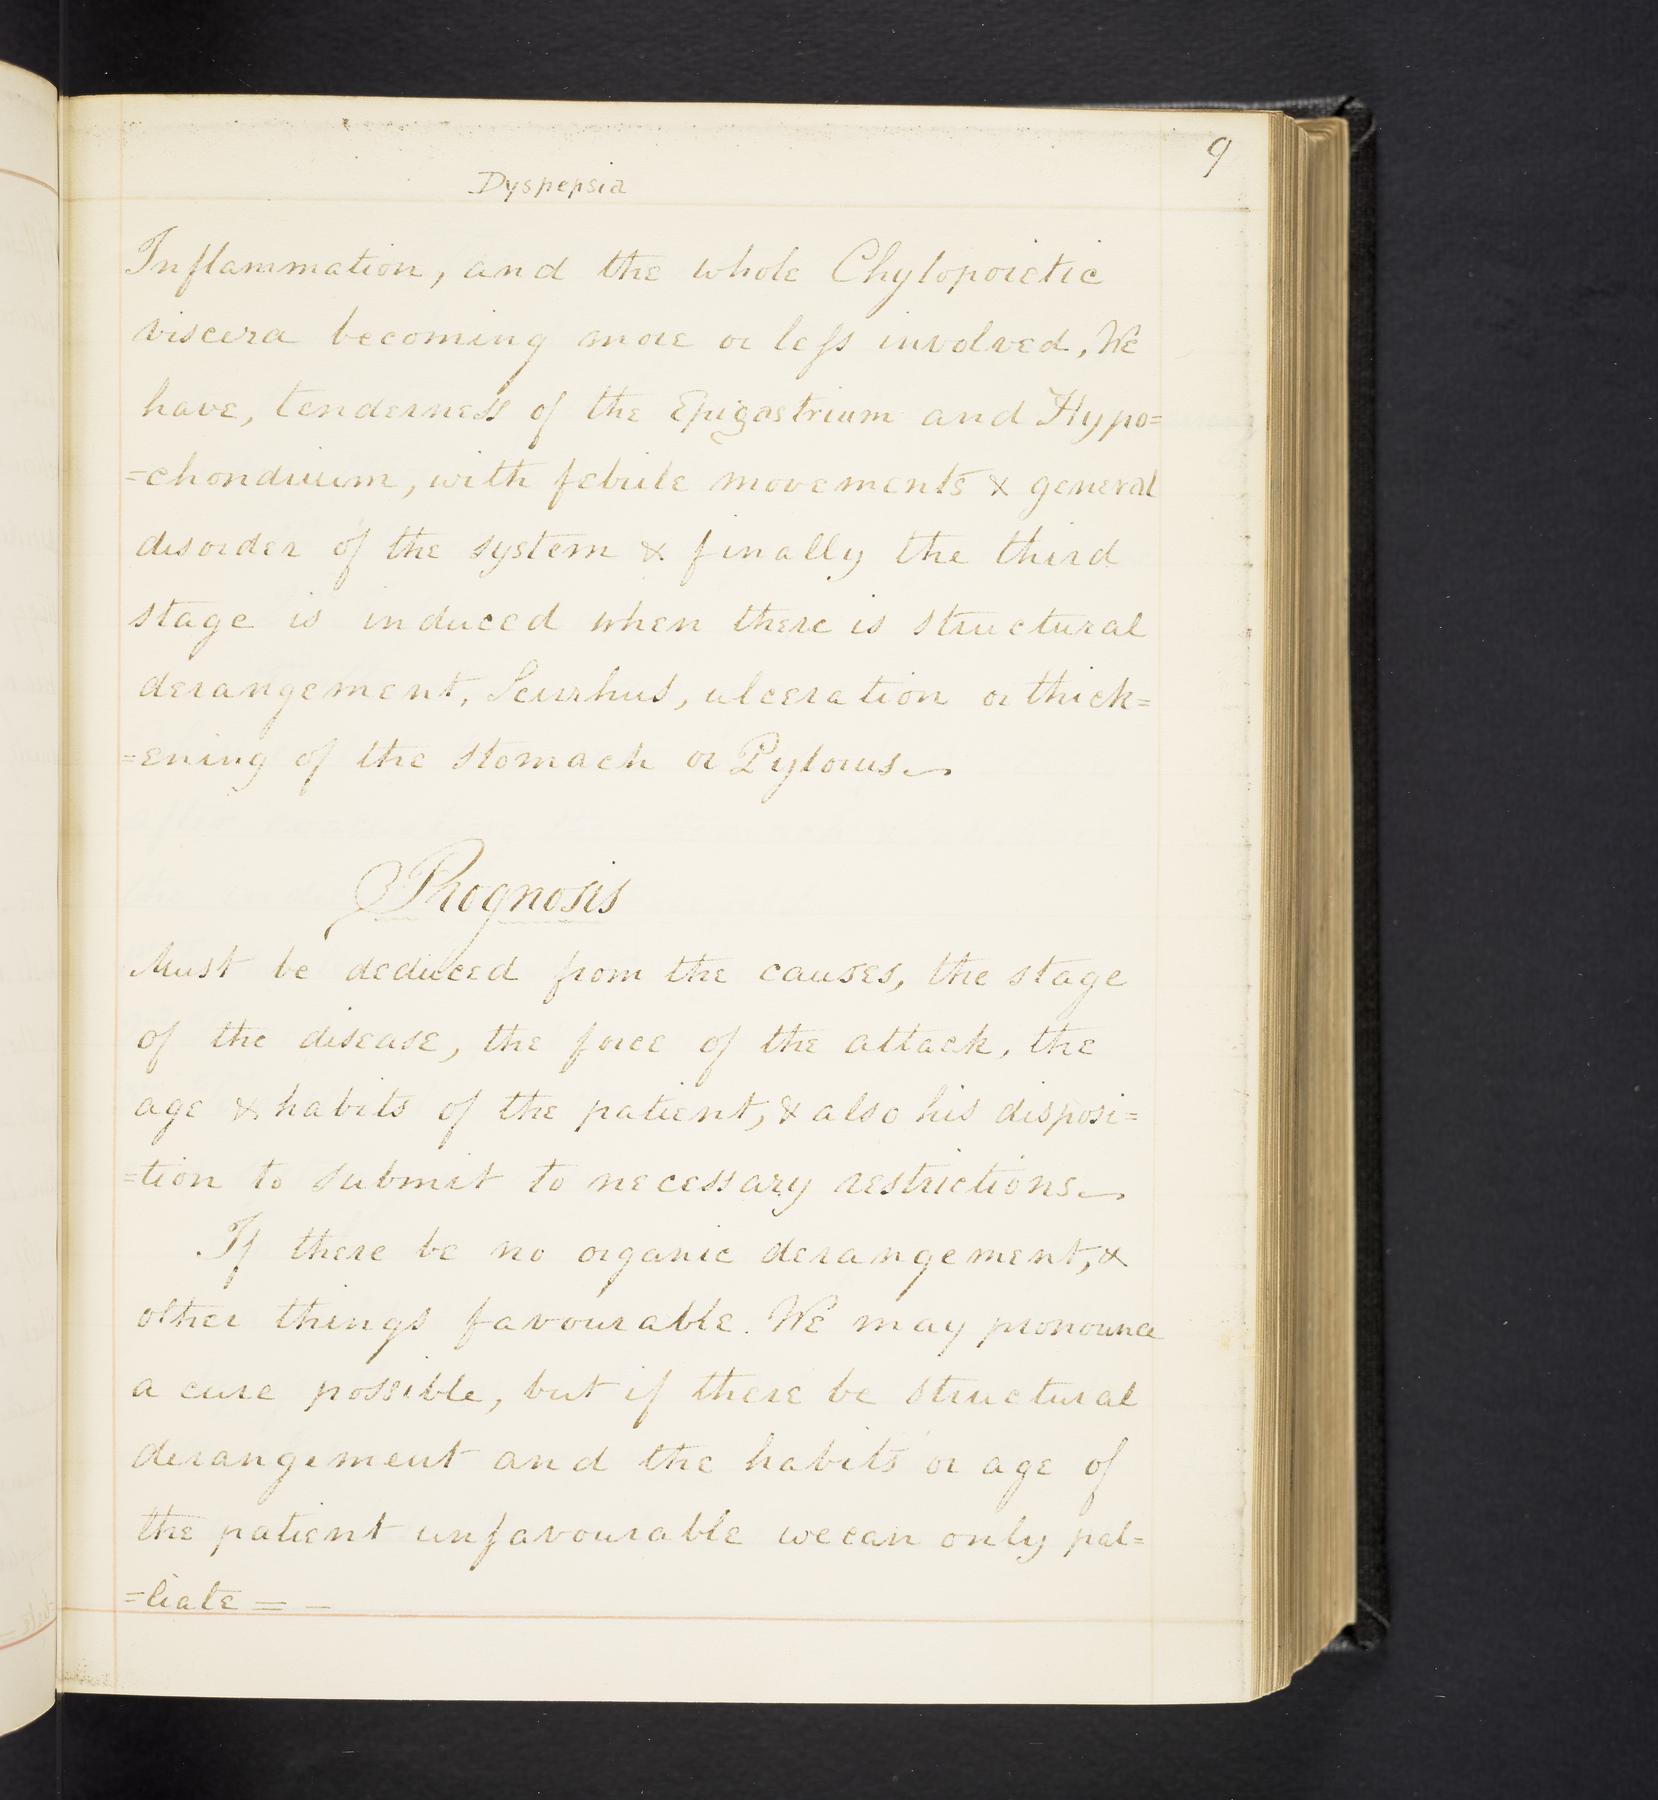 9
Dyspepsia
Inflammation, and the whole Chylopoietic
viscera becoming more or less involved. We
have, tenderness of the Epigastrium and Hypo=
=chondrium, with febrile movements & general
disorder of the system & finally the third
stage is induced when there is structural
derangement, Scirrhus, ulceration or thick=
=ening of the stomach or Pylorus.
Prognosis
Must be deduced from the causes, the stage
of the disease, the force of the attack, the
age & habits of the patient, & also his disposi=
=tion to submit to necessary restrictions.
If there be no organic derangement, &
other things favourable. We may pronounce
a cure possible, but if there be structural
derangement and the habits or age of
the patient unfavourable we can only pal=
=liate = –